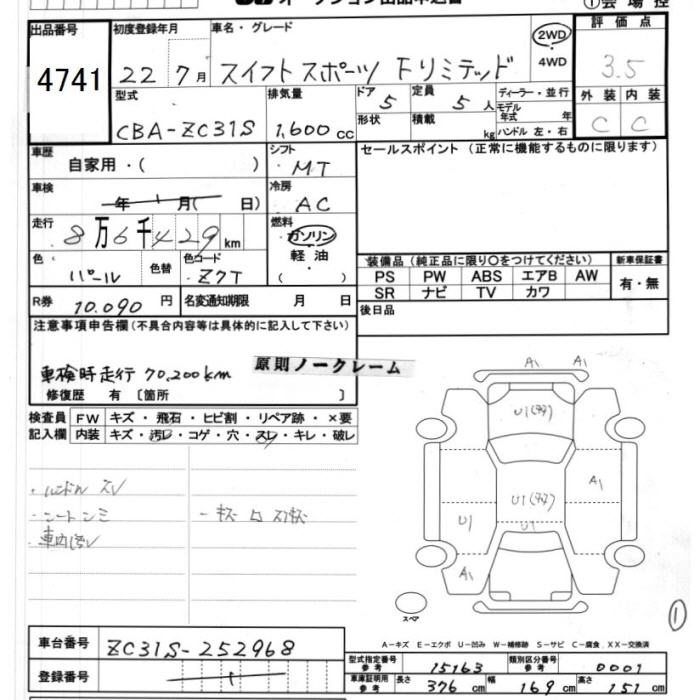 出品番号
4741
初度登録年月
22 7月
車名・グレード
スイフトスポーツ Fリミテッド
2WD
4WD
評価点
3.5
型式
CBA-ZC31S
排気量
1,600cc
ドア
5
定員
5人
形状
積載
kg
ディーラー・並行
モデル年式 年
ハンドル 左・右
外装 内装
C C
車歴
自家用・( )
シフト
・MT
セールスポイント (正常に機能するものに限ります)
車検
年 月( 日)
冷房
AC
走行
8万6千429km
燃料
ガソリン
軽油
( )
色
パール
色替
色コード
Z7T
装備品 (純正品に限り○をつけてください)
PS PW ABS エアB AW
SR ナビ TV カワ
新車保証書
有・無
R券 10.090円
名変通知期限 月 日
後日品
注意事項申告欄(不具合内容等は具体的に記入して下さい)
原則ノークレーム
車検時走行 70,200km
修復歴 有 〔箇所 〕
検査員記入欄
FW キズ・飛石・ヒビ割・リペア跡・×要
内装 キズ・汚レ・コゲ・穴・スレ・キレ・破レ
・ハンドル スレ
・シートシミ
・車内汚レ
A1 A1
U1
U1
U1
A1
A1
スペア
①
A-キズ E-エクボ U-凹み W-補修跡 S-サビ C-腐食 XX-交換済
車台番号 ZC31S-252968
登録番号
型式指定番号 参考 15163
類別区分番号 参考 0001
車庫証明用 参考 長さ 376cm 幅 169cm 高さ 151cm